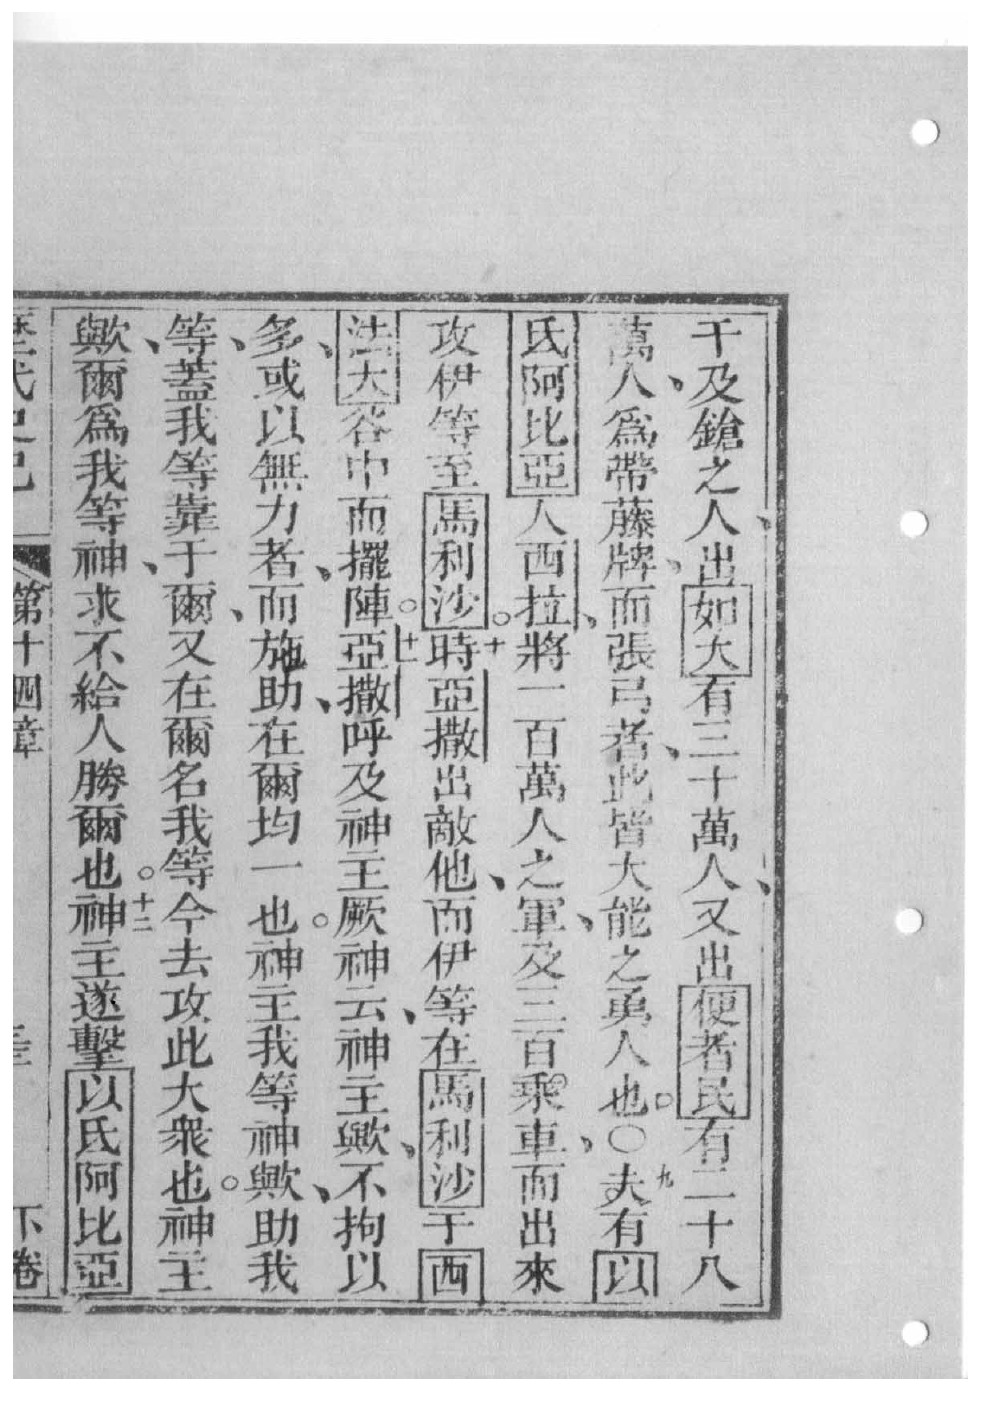 干及鎗之人、出如大有三十萬人、又出便者民有二十八
萬人、爲帶藤牌、而張弓者、此皆大能之勇人也。〇九夫有以
氏阿比亞人西拉、將一百萬人之軍、及三百乘車、而出來
攻伊等至馬利沙。十時亞撒出敵他、而伊等在馬利沙于西
法大谷中而擺陣。十一亞撒呼及神主厥神云、神主歟、不拘以
多、或以無力者、而施助、在爾均一也。神主我等神歟、助我
等、蓋我等靠于爾、又在爾名我等今去攻此大衆也。神主
歟、爾爲我等神、求不給人勝爾也。十二神主遂擊以氏阿比亞
第十四章 下卷